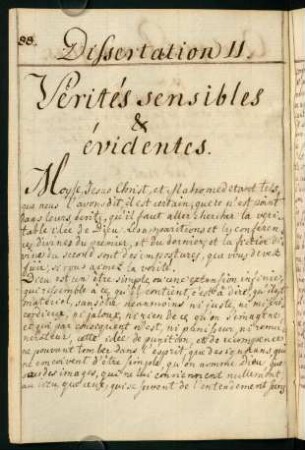 88.
Dissertation II.
Vérités sensibles
&
évidentes.
Moyse, Jesus Christ, et Mahomed etant tels,
que nous l'avons dit, il est certain, que ce n'est point
dans leurs écrits, qu'il faut aller chercher la veri-
table idée de Dieu. Les apparitions et les conféren-
ces divines du premier, et du dernier, et la filiation di-
vine du second sont des impostures, que vous devez
fuir, si vous aimez la vérité.
Dieu est un être simple, ou une extension infinie,
qui ressemble à ce, qu'il contient, c'est à dire, qu'il est
materiel, sans être neanmoins ni juste, ni misé-
ricordieux, ni jaloux, ni rien de ce, qu'on s'imagine,
et qui par consequent n'est, ni punisseur, ni remu-
nerateur, cette idée de punition, et de recompense
ne pouvant tomber dans l'esprit, que des ignorans qui
ne conçoivent d'être simple, qu'on nomme Dieu, que
sous des images, qui ne lui conviennent nullement,
au lieu que ceux, qui se servent de l'entendement sans